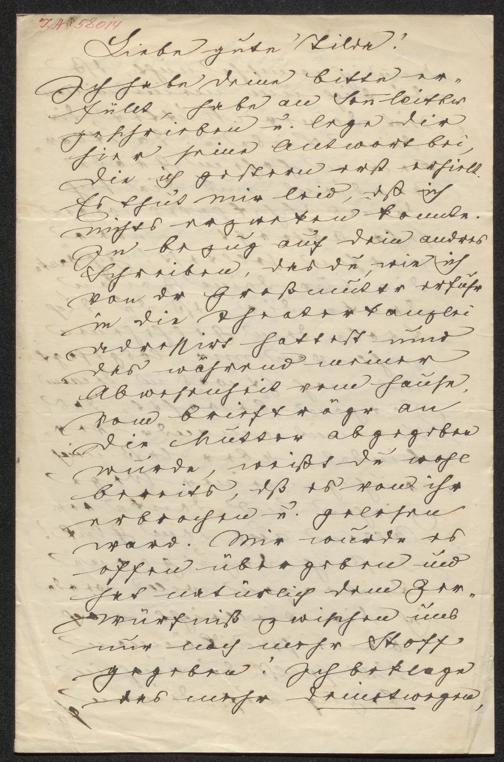 J.N. 58014
Liebe gute Tilda!
Ich habe deine bitte er-
füllt, habe an Sonleithner
geschrieben u. lege dir
hier seine Antwort bei,
die ich gestern erst erhielt.
Es thut mir leid, dß ich
nichts erzweken konnte.
In bezug auf dein andres
Schreiben, das du, wie ich
von dr Großmutter erfuhr
in die Theaterkanzlei
adressirt hattest und
das während meiner
Abwesenheit vom Hause,
vom briefträgr an
die Mutter abgegeben
wurde, weißt du wohl
bereits, dß es von ihr
erbrochen u. gelesen
ward. Mir wurde es
offen übergeben und
hat natürlich dem Zer-
würfniß zwischen uns
nur noch mehr Stoff
gegeben! Ich beklage
das mehr deinetwegen,